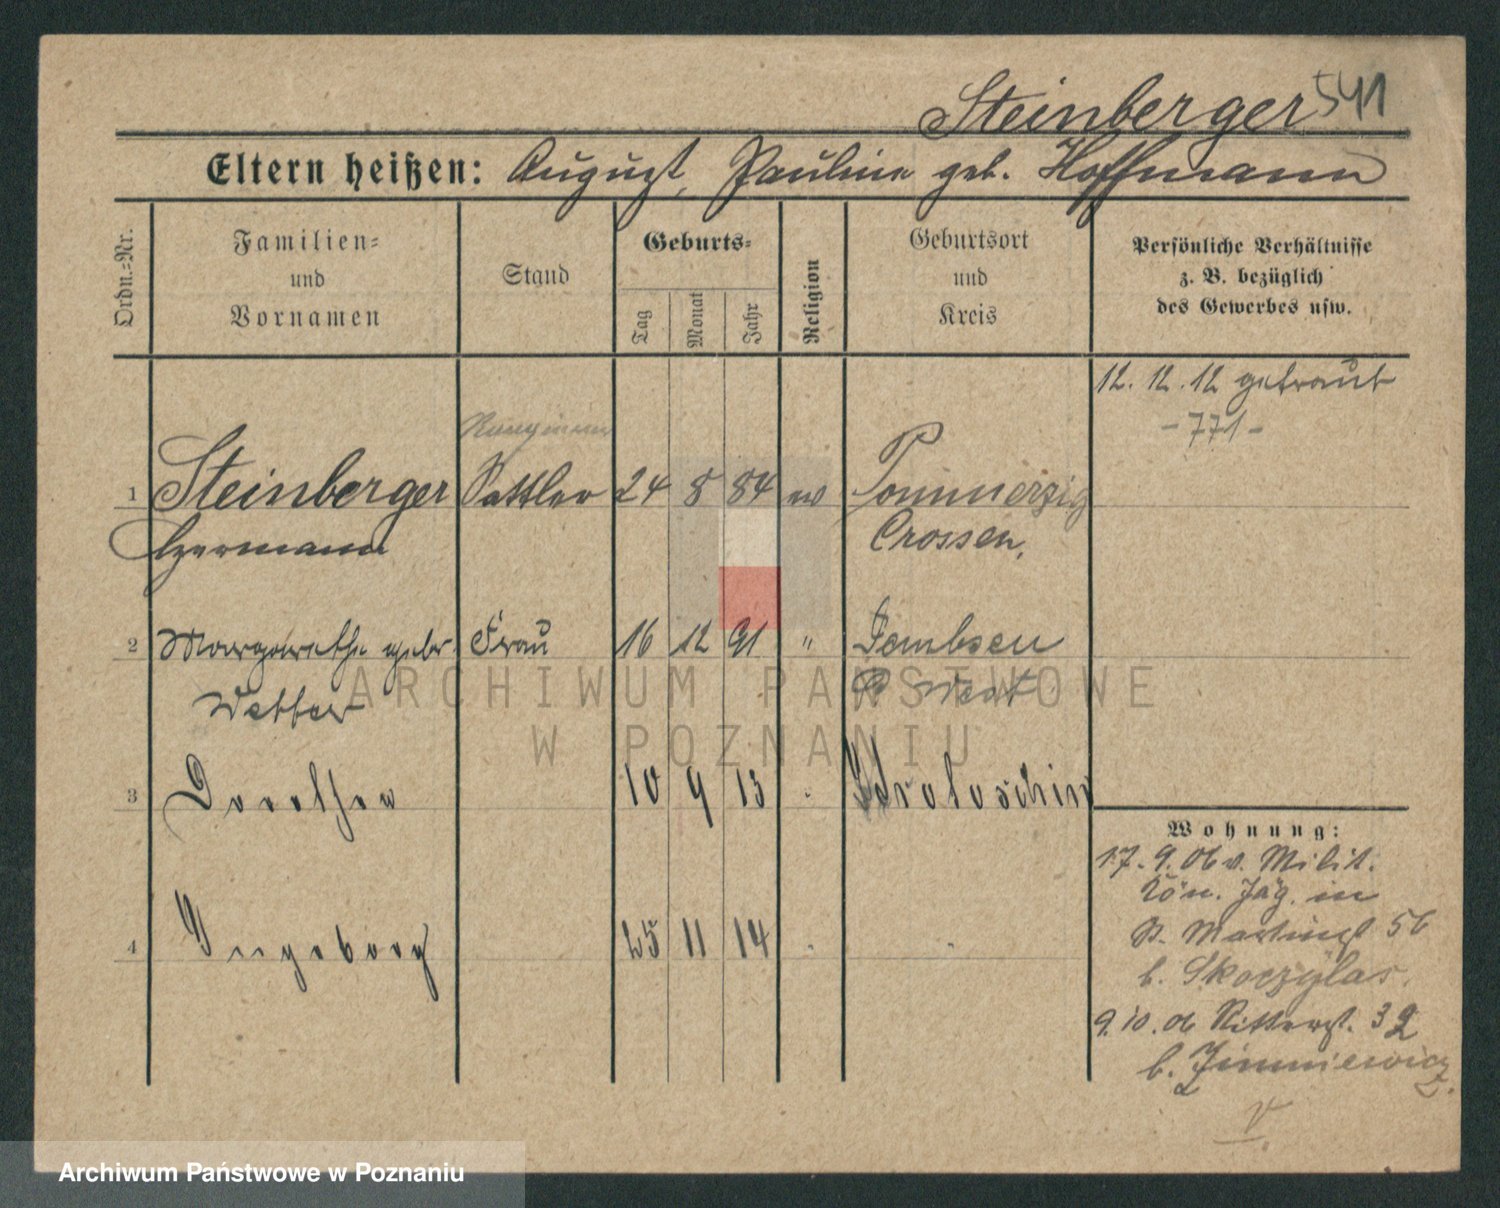 Steinberger 541
Eltern heißen: August, Pauline geb. Hoffmann
Ordn.=Nr.
Familien= und Vornamen
Stand
Geburts=
Tag
Monat
Jahr
Religion
Geburtsort und Kreis
Persönliche Verhältnisse z. B. bezüglich des Gewerbes usw.
12. 12. 12 getraut
- 771 -
1 Steinberger Sattler 24 8 84 ev Pommerzig
Hermann Crossen.
2 Margarethe gebr. Frau 16 12 91 " Jambsen
Vetter P. West
3 Dorothea 10 9 13 Krotoschin
4 Ingeborg 25 11 14 "
Wohnung:
17. 9. 06 v. Milit.
Kön. Jäg. in
St. Martinst 56
b. Skoczylas.
9. 10. 06 Ritterst. 32
b. Zimniewicz.
V.
ARCHIWUM PAŃSTWOWE
W POZNANIU
Archiwum Państwowe w Poznaniu